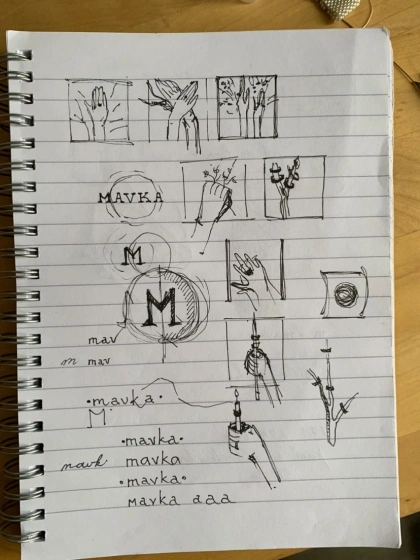 MAVKA
M
M
mav
m mav
•mavka•
M
•mavka•
mavk mavka
•mavka•
mavka aaa